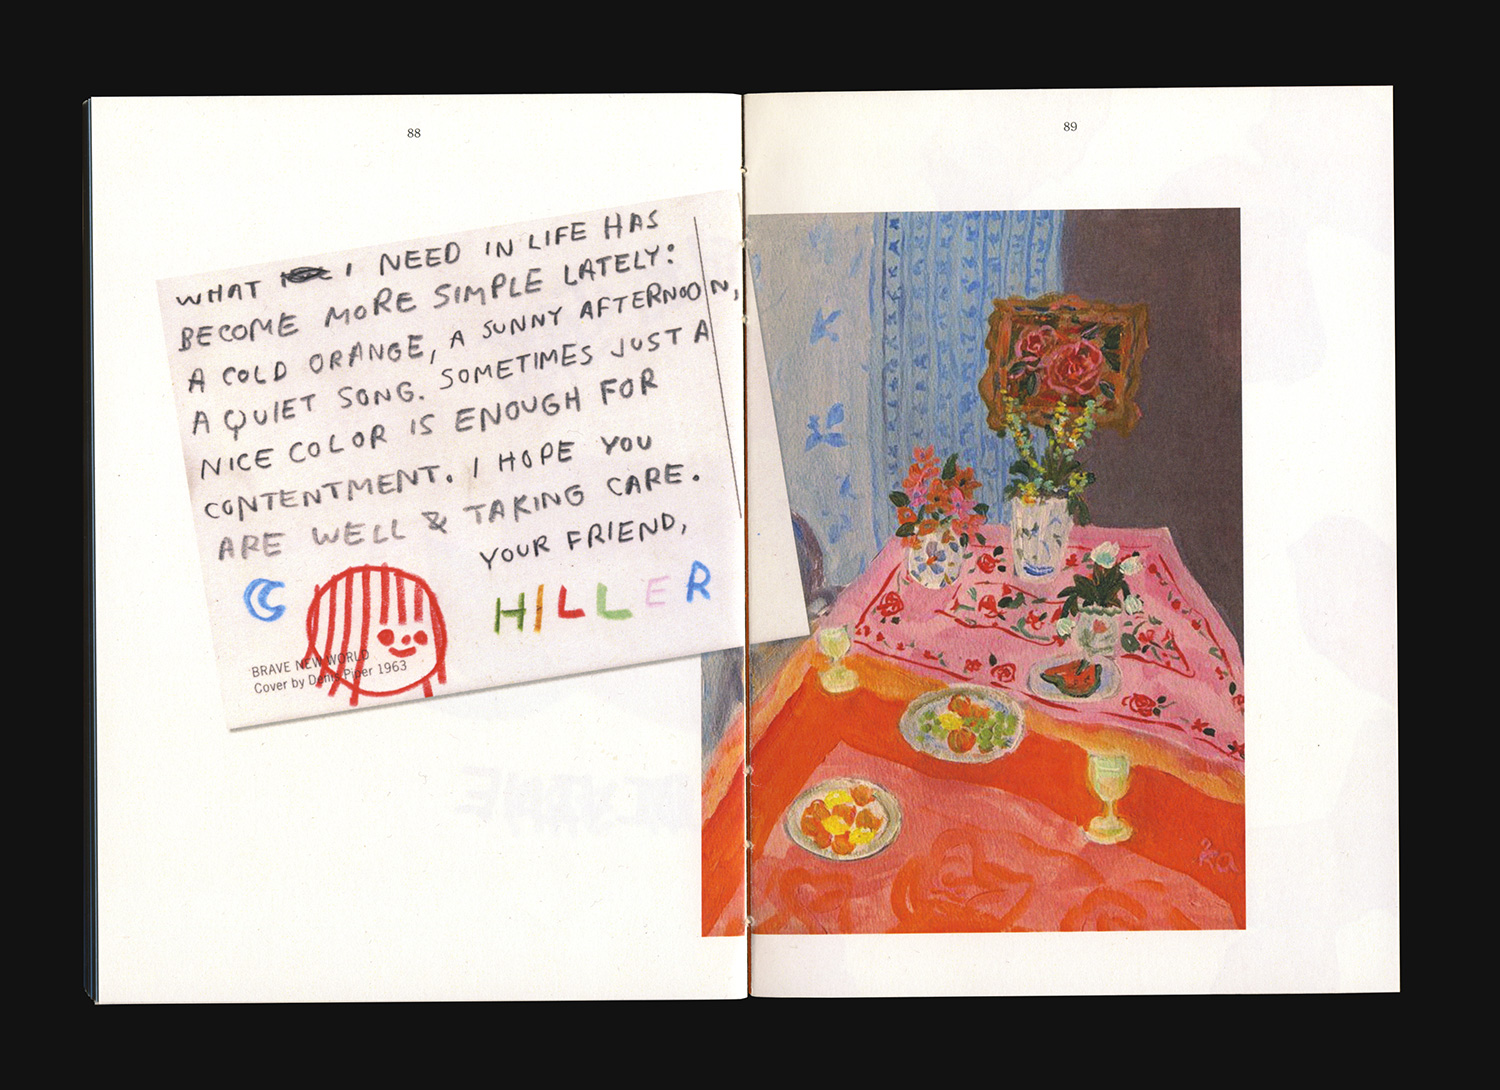 88
WHAT I NEED IN LIFE HAS
BECOME MORE SIMPLE LATELY:
A COLD ORANGE, A SUNNY AFTERNOON,
A QUIET SONG. SOMETIMES JUST A
NICE COLOR IS ENOUGH FOR
CONTENTMENT. I HOPE YOU
ARE WELL & TAKING CARE.
YOUR FRIEND,
HILLER
BRAVE NEW WORLD
Cover by Denis Piper 1963
89
ka